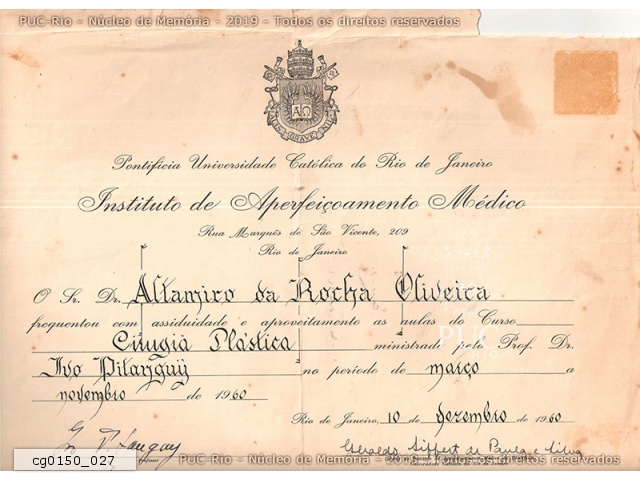 PUC-Rio - Núcleo de Memória - 2019 - Todos os direitos reservados
ALIS GRAVE NIL
ΑΩ
Pontifícia Universidade Católica do Rio de Janeiro
Instituto de Aperfeiçoamento Médico
Rua Marquês de São Vicente, 209
Rio de Janeiro
O Sr. Dr. Altamiro da Rocha Oliveira
frequentou com assiduidade e aproveitamento as aulas do Curso
Cirugia Plástica ministrado pelo Prof. Dr.
Ivo Pitanguÿ no período de março a
novembro de 1960
Rio de Janeiro, 10 de dezembro de 1960
Pitanguy
Geraldo Siffert de Paula e Silva
cg0150_027
PUC-Rio - Núcleo de Memória - 2019 - Todos os direitos reservados